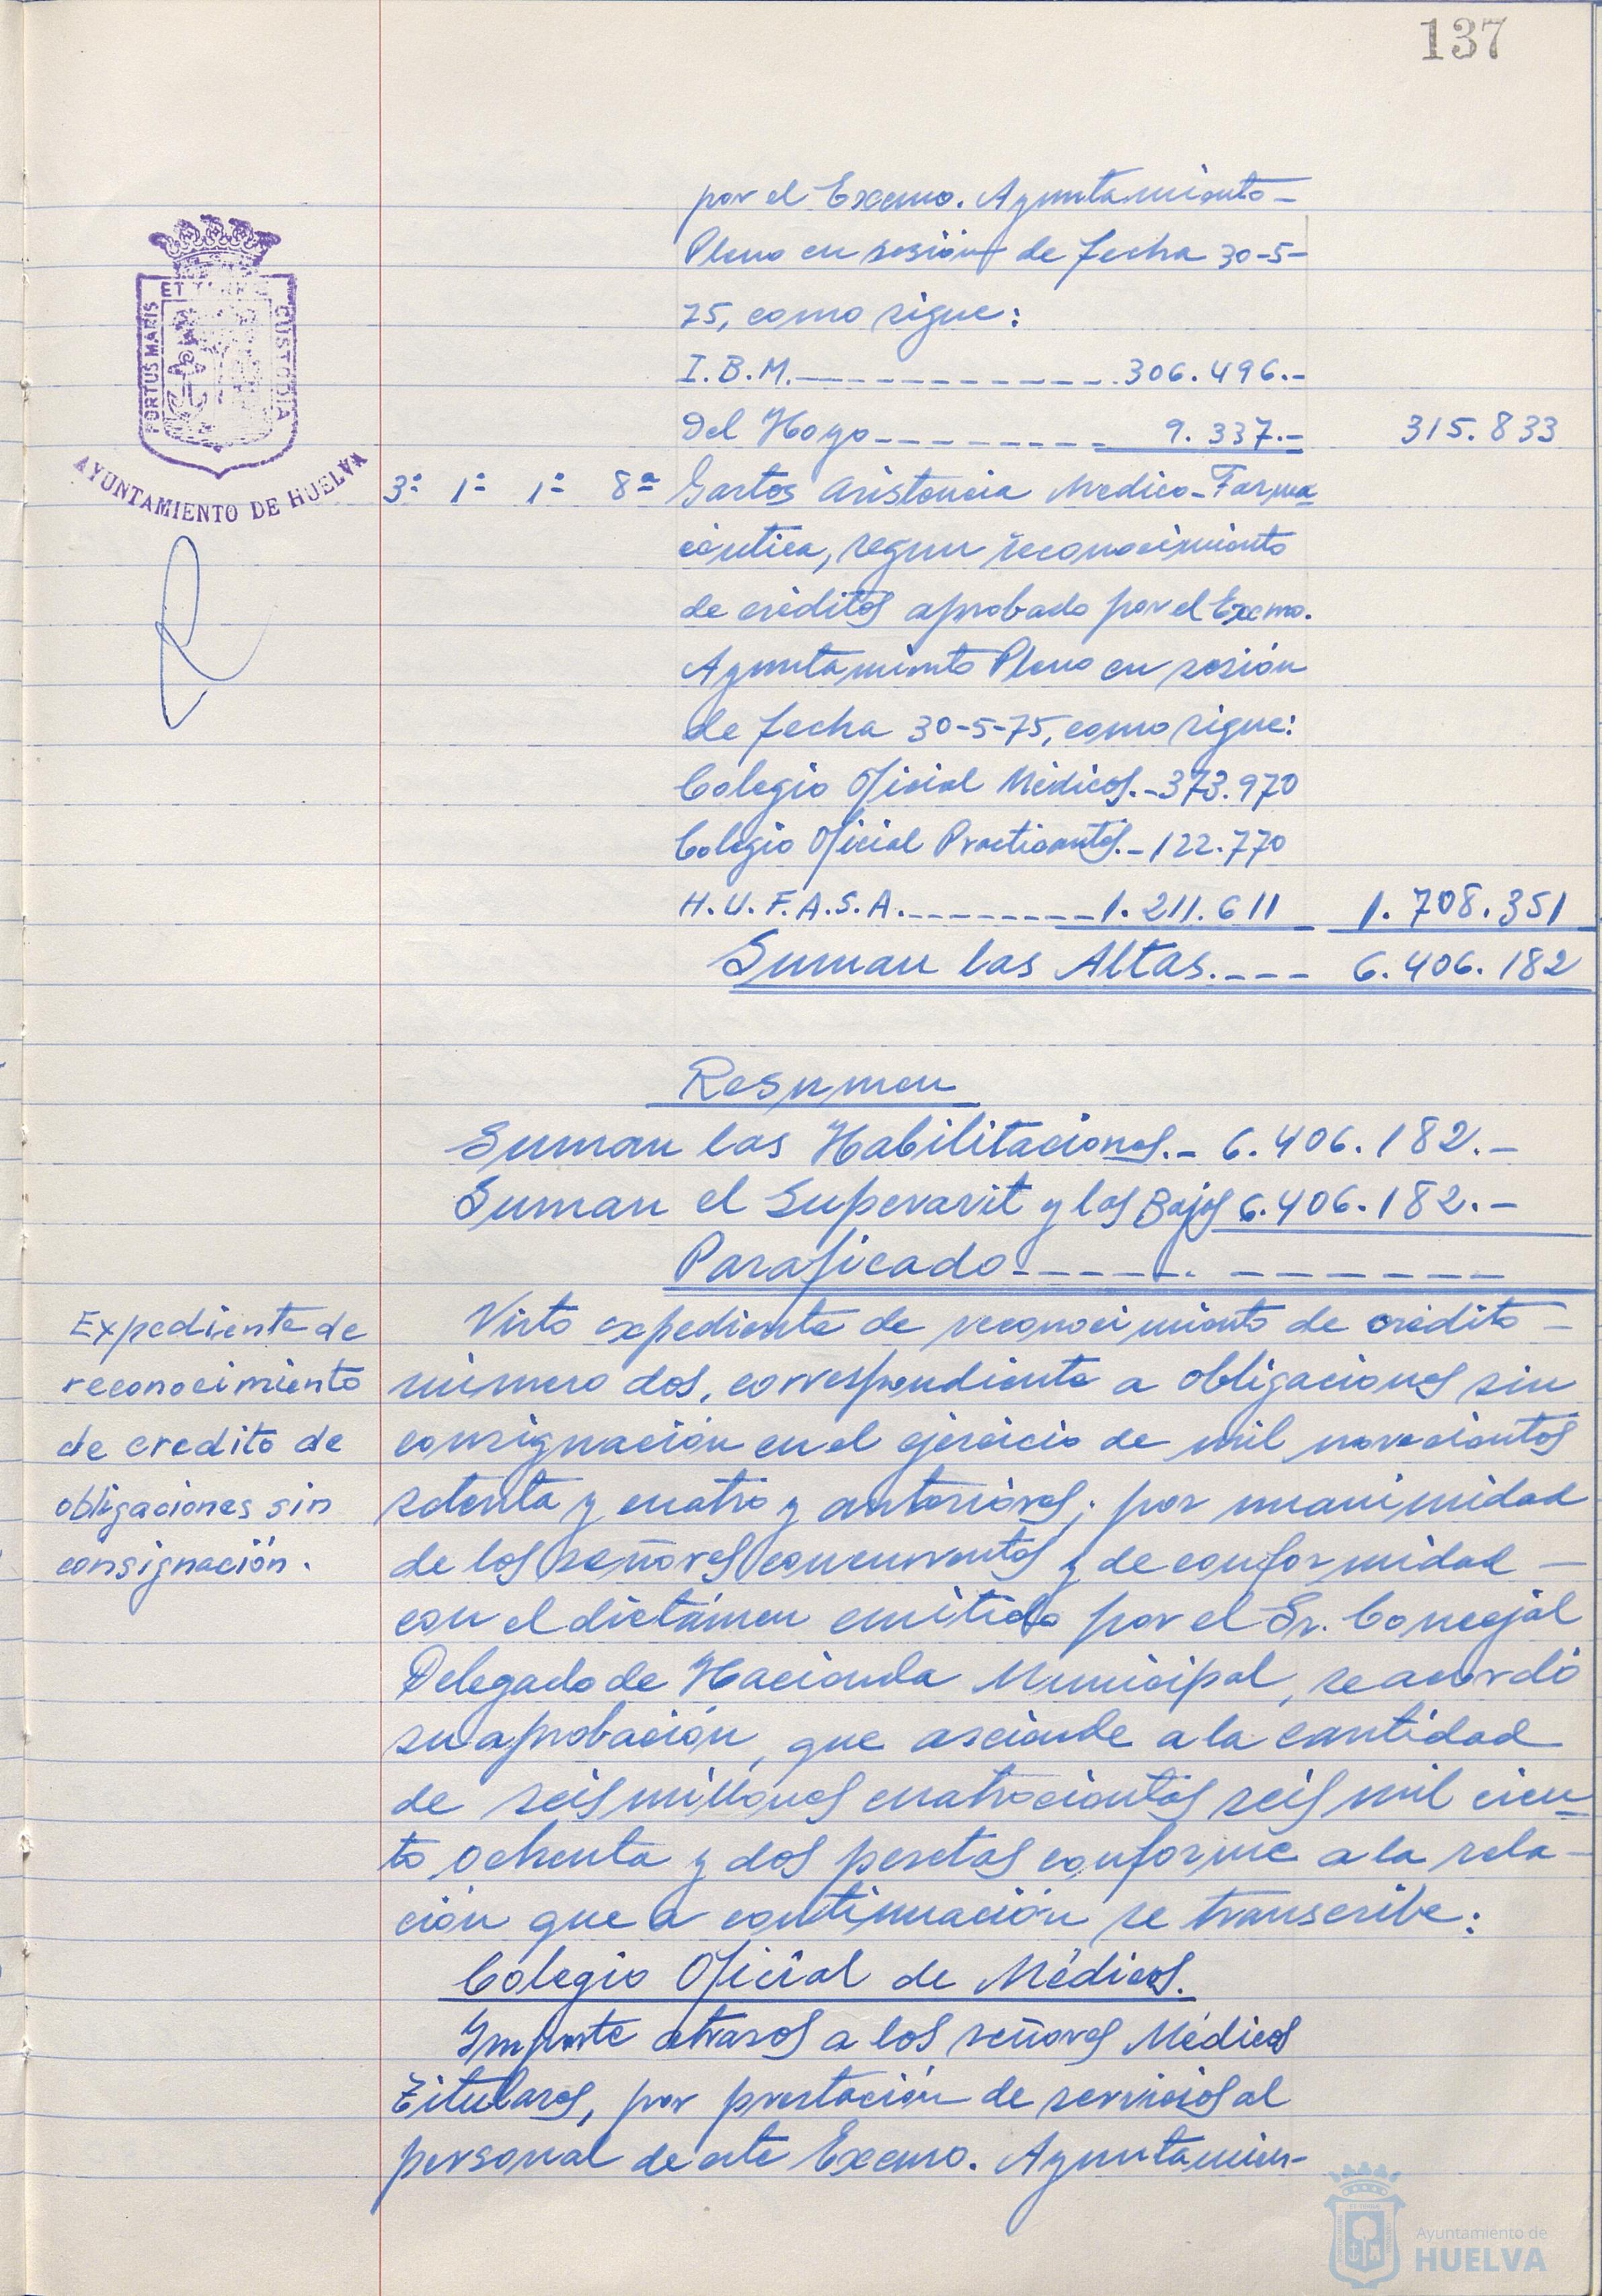 137
por el Excmo. Ayuntamiento-
Pleno en sesión de fecha 30-5-
75, como sigue:
I.B.M.------------306.496.-
Del Hoyo--------- 9.337.- 315.833
PORTUS MARIS ET TERRAE CUSTODIA
AYUNTAMIENTO DE HUELVA
3ª 1ª 1ª 8ª Gastos Asistencia Medico-Farma
céutica, segun reconocimiento
de créditos aprobado por el Excmo.
Ayuntamiento Pleno en sesión
de fecha 30-5-75, como sigue:
Colegio Oficial Médicos.-373.970
Colegio Oficial Practicantes.-122.770
H.U.F.A.S.A.---------1.211.611 1.708.351
Suman las Altas.--- 6.406.182
Resumen
Suman las Habilitaciones.- 6.406.182.-
Suman el Superavit y las Bajas 6.406.182.-
Paraficado------. -------
Expediente de
reconocimiento
de credito de
obligaciones sin
consignación.
Visto expediente de reconocimiento de crédito -
número dos, correspondiente a obligaciones sin
consignación en el ejercicio de mil novecientos
setenta y cuatro y anteriores; por unanimidad
de los señores concurrentes y de conformidad -
con el dictámen emitido por el Sr. Concejal
Delegado de Hacienda Municipal, se acordó
su aprobación, que asciende a la cantidad
de seis millones cuatrocientas seis mil cien-
to ochenta y dos pesetas conforme a la rela-
ción que a continuación se transcribe:
Colegio Oficial de Médicos.
Importe atrasos a los señores Médicos
Titulares, por prestación de servicios al
personal de este Excmo. Ayuntamien-
Ayuntamiento de
HUELVA